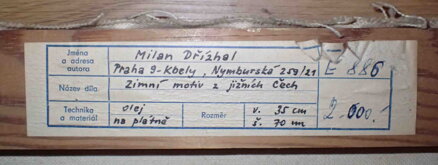 Jména a adresa autora
Milan Dřížhal
Praha 9-Kbely, Nymburská 259/21
E 886
Název díla
Zimní motiv z jižních Čech
Technika a materiál
olej na plátně
Rozměr
v. 35 cm
š. 70 cm
2.000.-